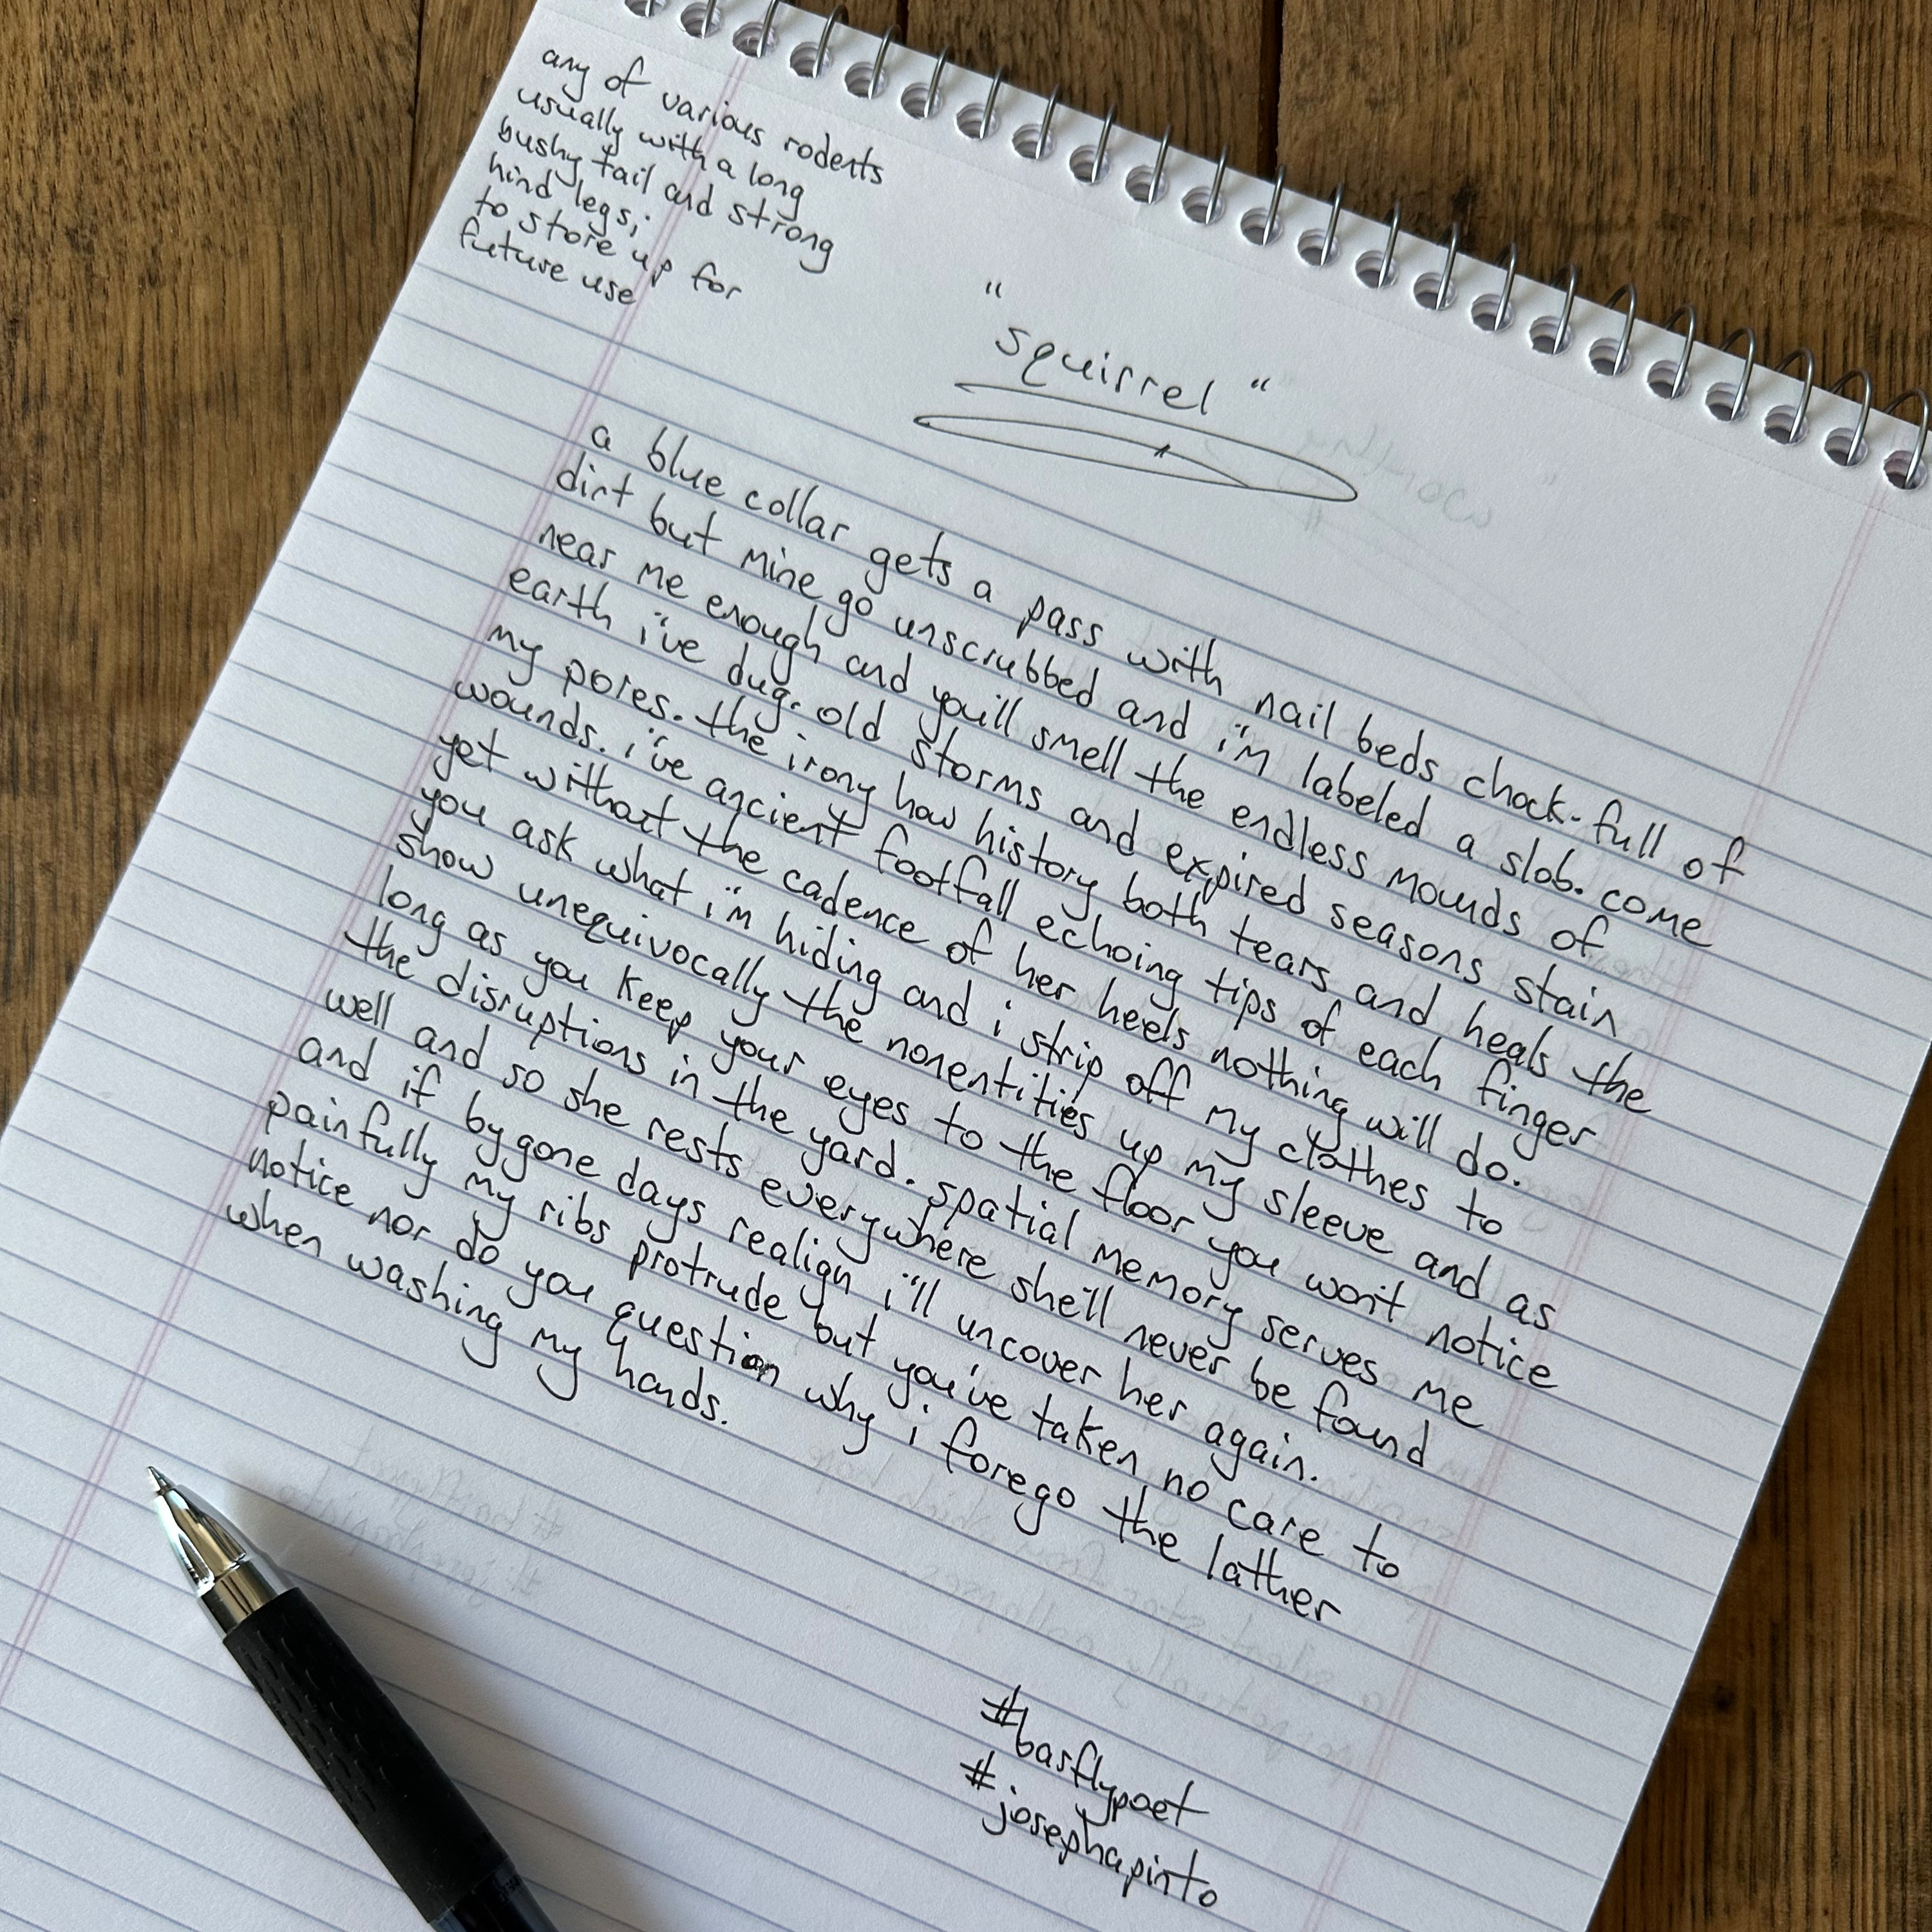 any of various rodents
usually with a long
bushy tail and strong
hind legs;
to store up for
future use
"squirrel"
a blue collar gets a pass with nail beds chock-full of
dirt but mine go unscrubbed and i'm labeled a slob. come
near me enough and you'll smell the endless mounds of
earth i've dug. old storms and expired seasons stain
my pores. the irony how history both tears and heals the
wounds. i've ancient footfall echoing tips of each finger
yet without the cadence of her heels nothing will do.
you ask what i'm hiding and i strip off my clothes to
show unequivocally the nonentities up my sleeve and as
long as you keep your eyes to the floor you won't notice
the disruptions in the yard. spatial memory serves me
well and so she rests everywhere she'll never be found
and if bygone days realign i'll uncover her again.
painfully my ribs protrude but you've taken no care to
notice nor do you question why i forego the lather
when washing my hands.
#barflypoet
#josephapinto